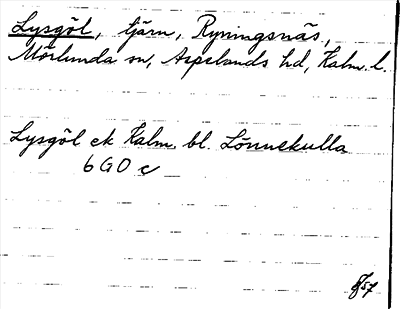 Lysgöl, tjärn, Ryningsnäs,
Mörlunda sn, Aspelands hd, Kalm. l.
Lysgöl ek Kalm. bl. Lönnekulla
6 G O c
57